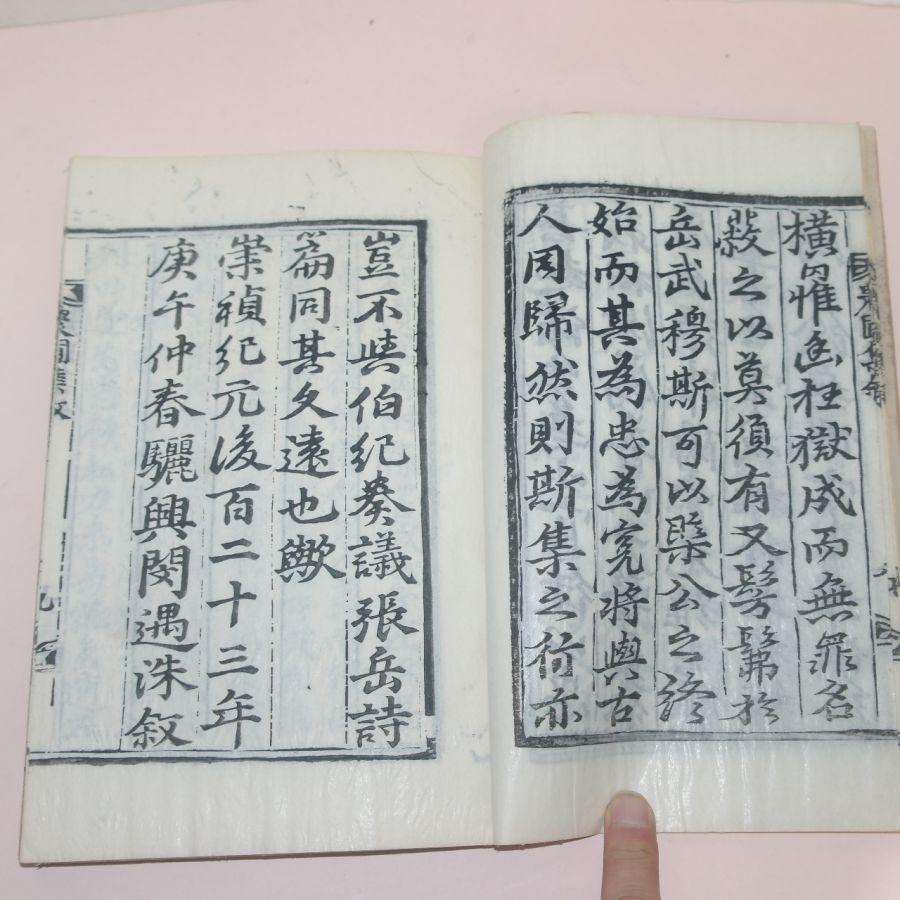 橫罹幽枉獄成而無罪名
殺之以莫須有又髣髴於
岳武穆斯可以槩公之終
始而其為忠為寃將與古
人同歸然則斯集之行亦
豈不與伯紀奏議張岳詩
篇同其久遠也歟
崇禎紀元後百二十三年
庚午仲春驪興閔遇洙叙